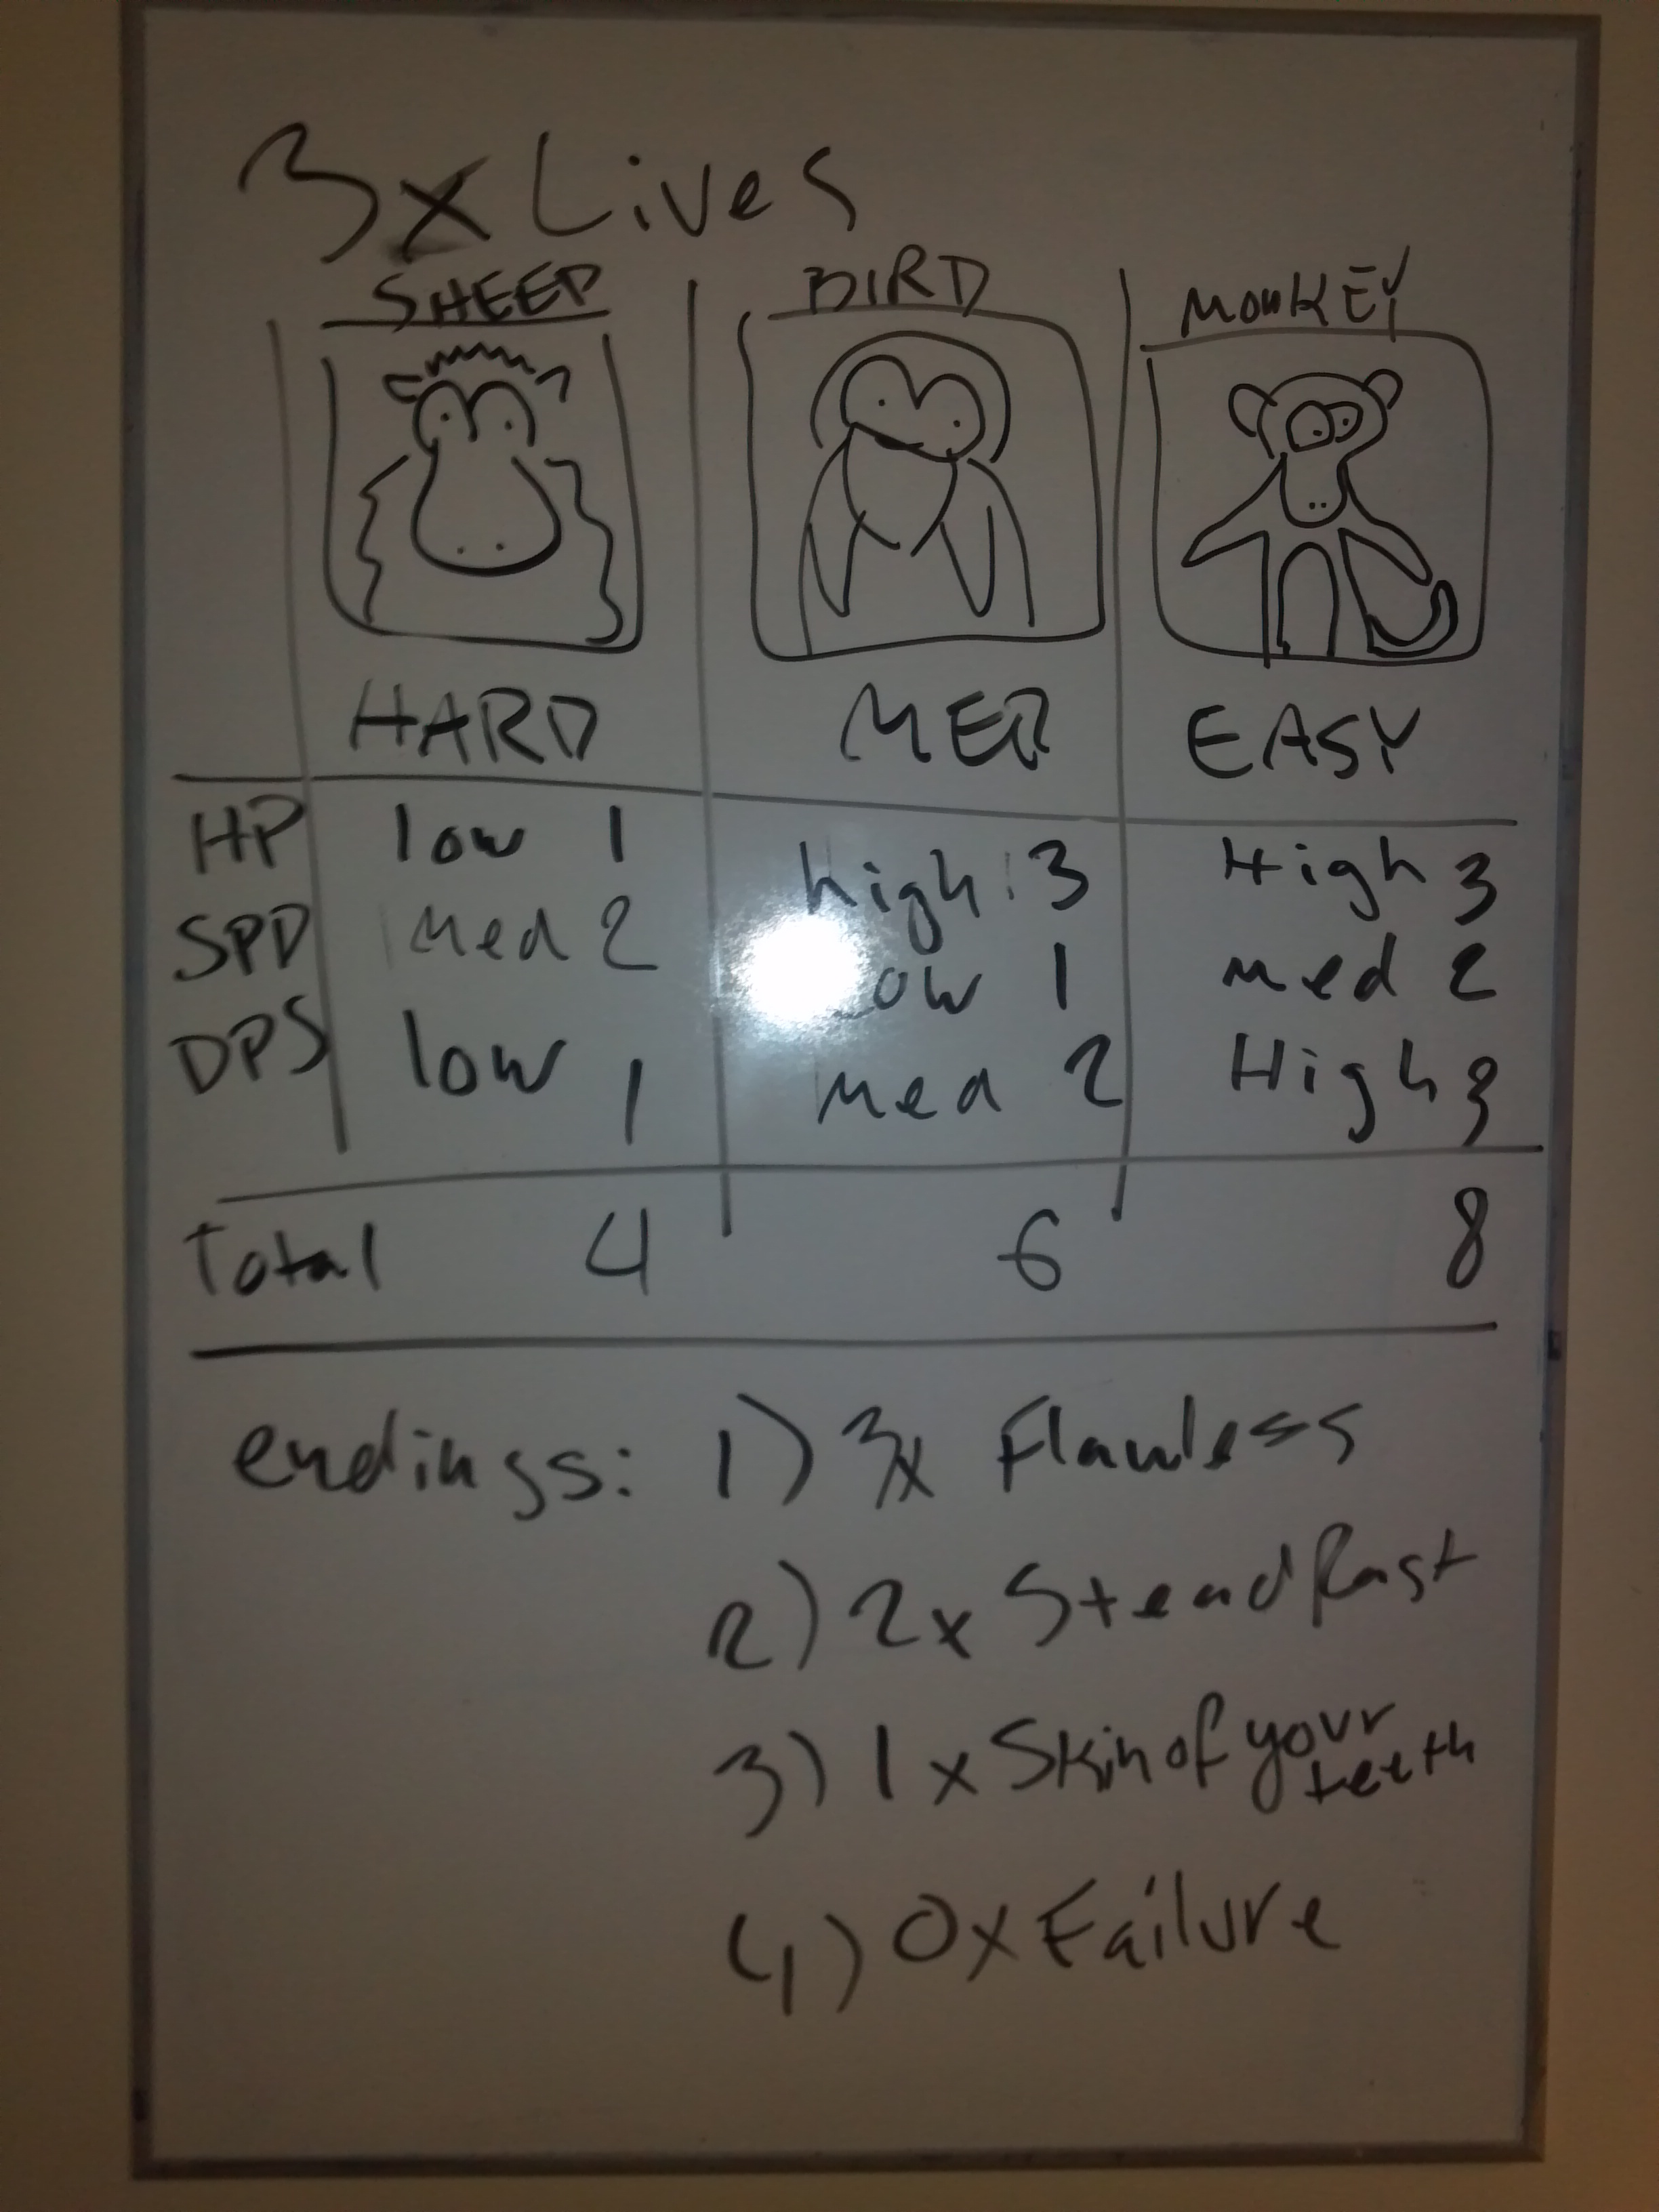 3x Lives
SHEEP BIRD MONKEY
HARD MED EASY
HP low 1 high 3 High 3
SPD Med 2 low 1 med 2
DPS low 1 Med 2 High 3
Total 4 6 8
endings: 1) 3x Flawless
2) 2x Steadfast
3) 1x Skin of your teeth
4) 0x Failure